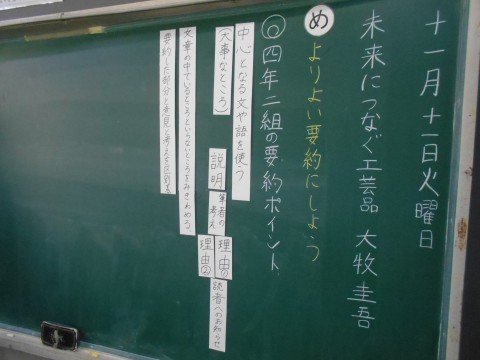 十一月十一日火曜日
未来につなぐ工芸品 大牧圭吾
め よりよい要約にしよう
◎四年二組の要約ポイント
中心となる文や語を使う
(大事なところ)
説明
筆者の考え
理由①
理由②
読者へのお知らせ
文章の中でいるところといらないところをみきわめる
要約した部分と意見や考えを区別する